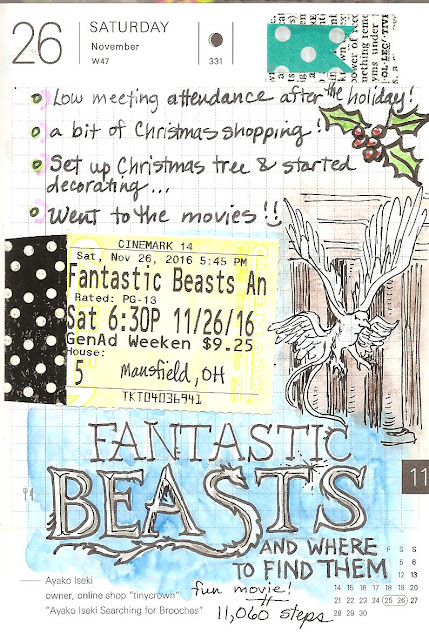 26
SATURDAY
November
W47
331
Low meeting attendance after the holiday!
a bit of Christmas shopping!
Set up Christmas tree & started
decorating...
Went to the movies!!
CINEMARK 14
Sat, Nov 26, 2016 5:45 PM
Fantastic Beasts An
Rated: PG-13
Sat 6:30P 11/26/16
GenAd Weeken $9.25
House:
5
Mansfield, OH
TKT04036941
FANTASTIC
BEASTS
AND WHERE
TO FIND THEM
11
F S S
5 6
12 13
14 15 16 17 18 19 20
21 22 23 24 25 26 27
28 29 30
Ayako Iseki
owner, online shop "tinycrown"
"Ayako Iseki Searching for Brooches"
fun movie!
11,060 steps